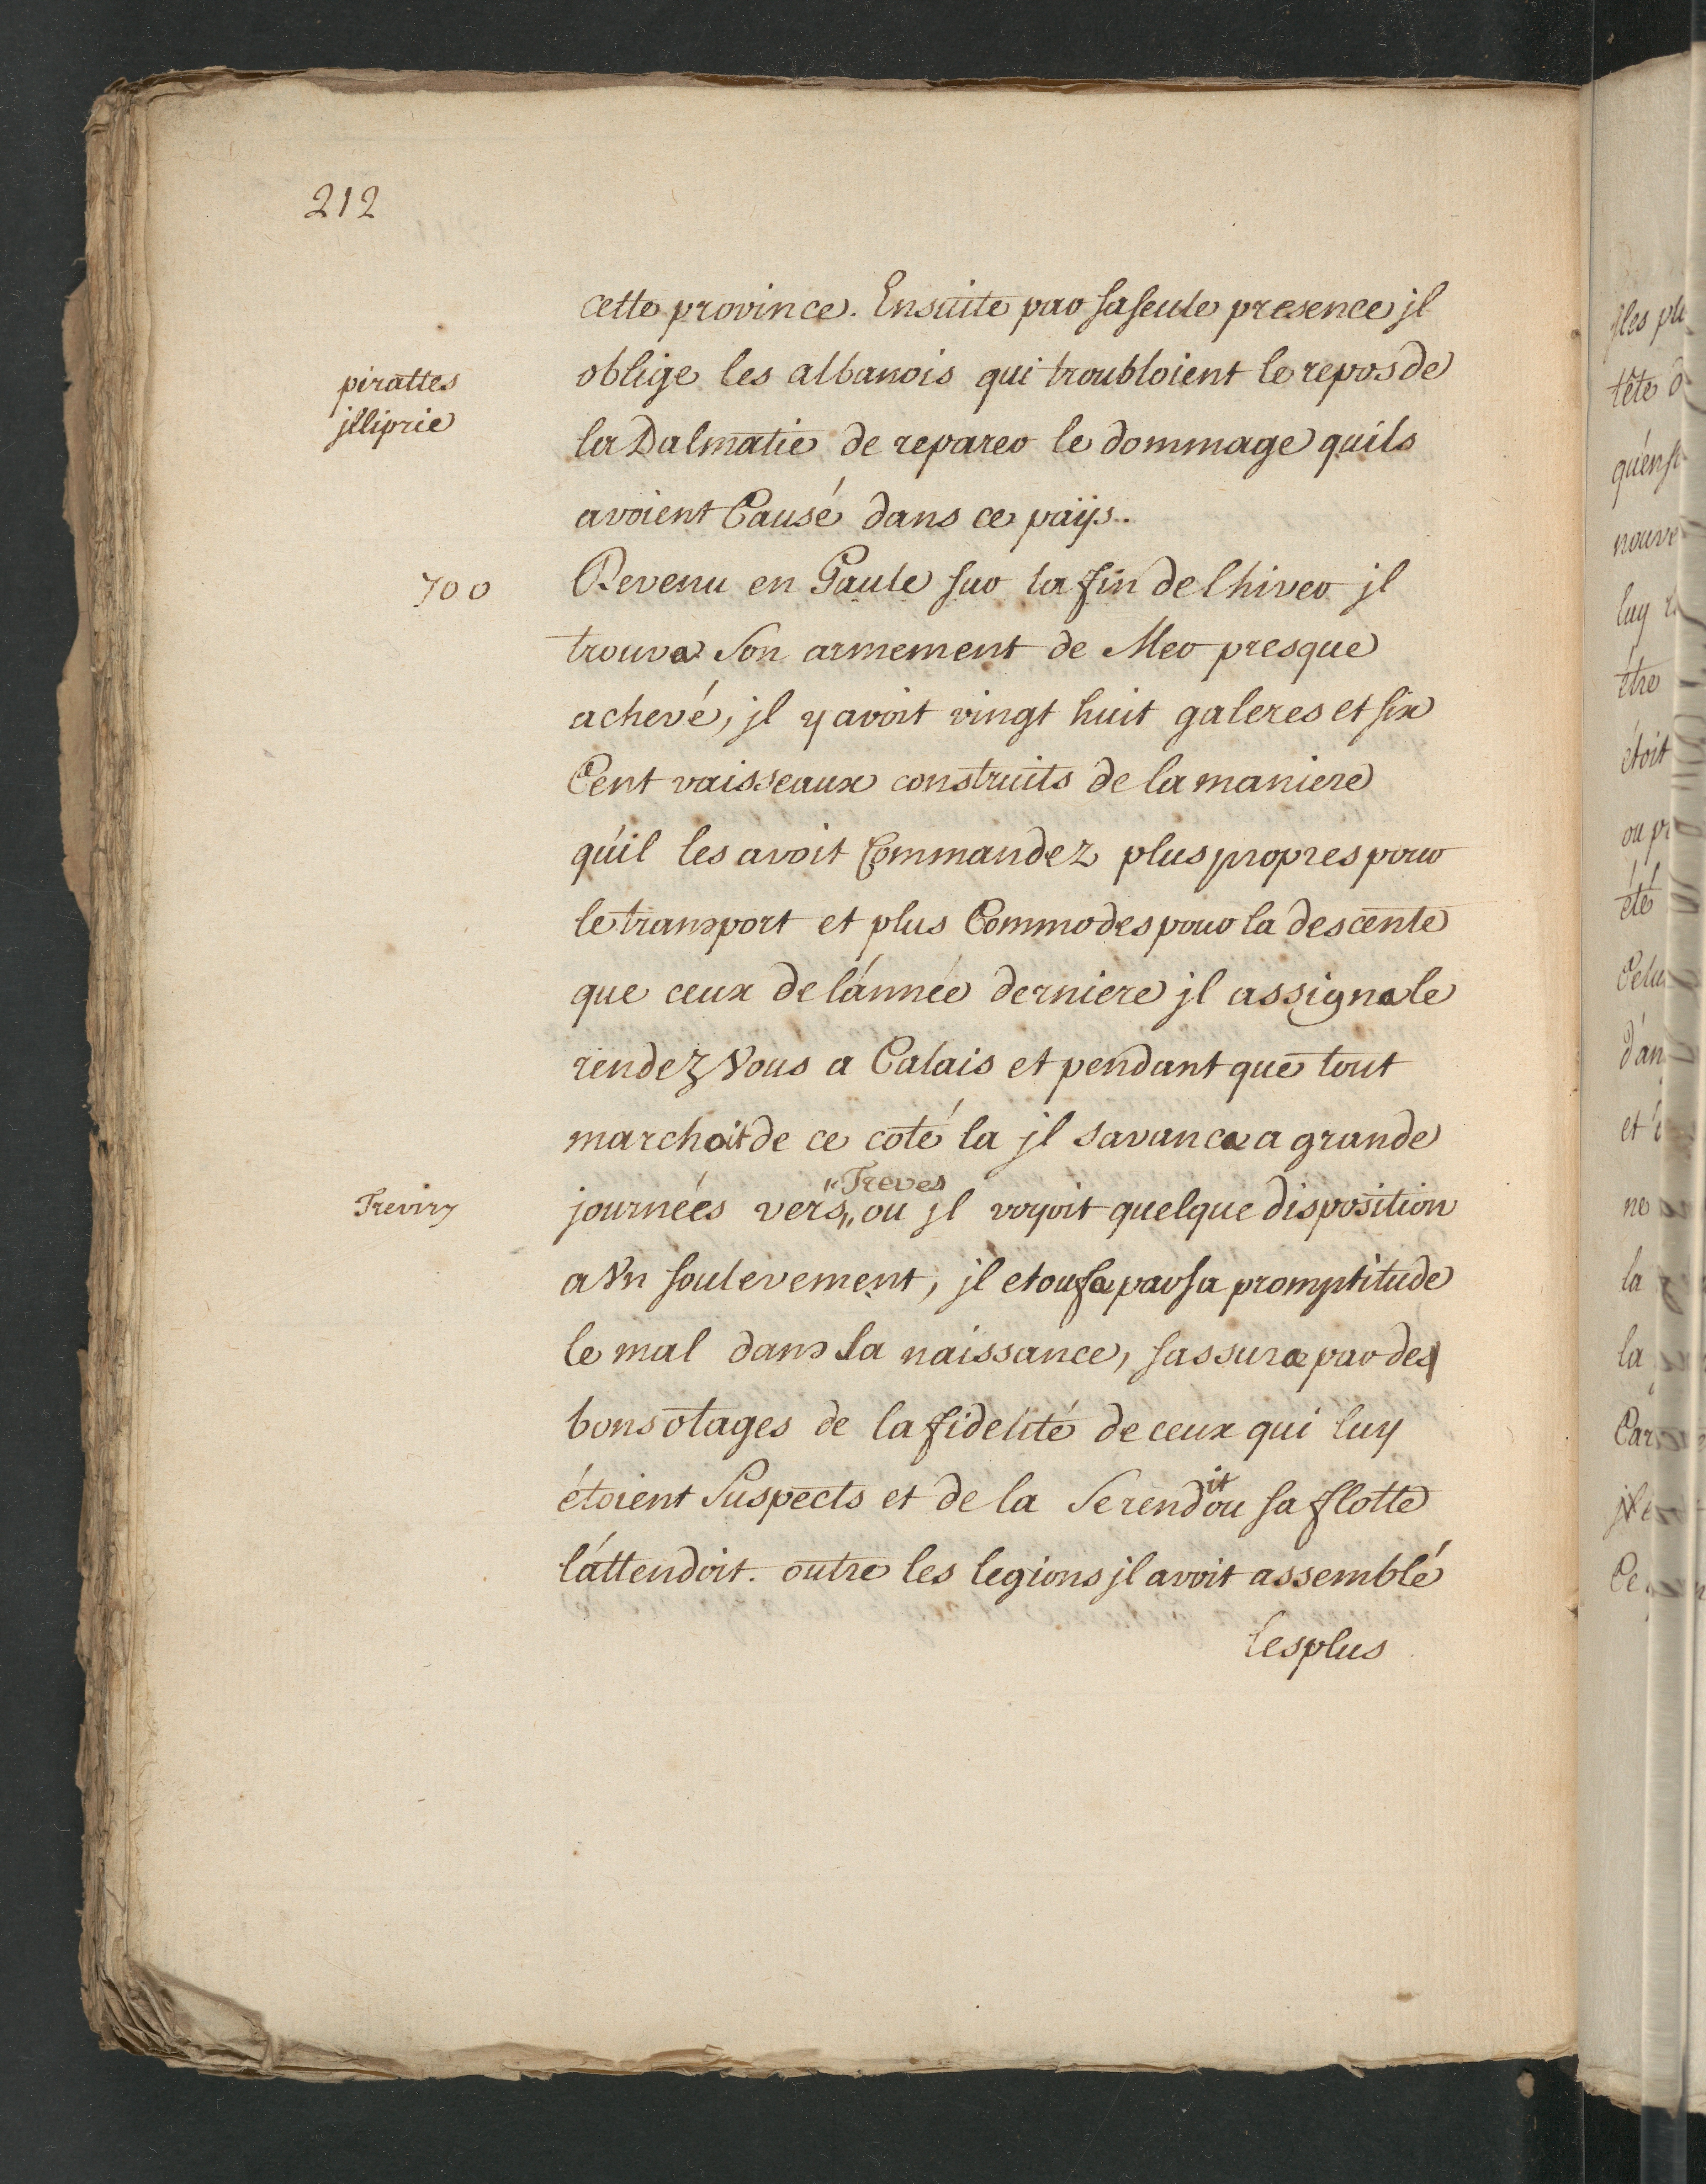 212
cette province. Ensuite par sa seule presence jl
oblige les albanois qui troubloient le repos de
pirattes
jlliprie
la Dalmatie de reparer le dommage quils
avoient Causé dans ce païjs.
700
Revenu en Gaule sur la fin de lhiver jl
trouva Son armement de Mer presque
achevé, jl y avoit vingt huit galeres et six
Cent vaisseaux construits de la maniere
qu'il les avoit Commandez plus propres pour
le transport et plus Commodes pour la descente
que ceux de l'année derniere jl assigna le
rendez Vous a Calais et pendant que tout
marchoit de ce coté la jl savança a grande
Treviry
journées vers "Treves" ou jl voyoit quelque disposition
a Vn soulevement, jl etoufa par sa promptitude
le mal dans sa naissance, sassura par des
bons otages de la fidelité de ceux qui luy
étoient Suspects et de la Se rendit ou sa flotte
l'attendoit. outre les legions jl avoit assemblé
les plus
jles plu
tête d
qu'ens
nouve
luy
être
étoit
ou pr
été
Celu
d'an
et
ne
la
la
Car
Ce